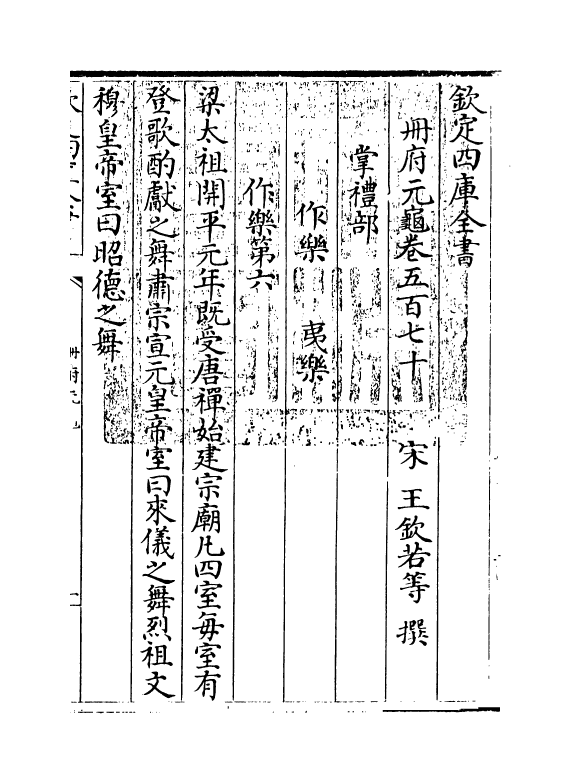 欽定四庫全書
冊府元龜卷五百七十　宋　王欽若等　撰
掌禮部
作樂　夷樂
作樂第六
梁太祖開平元年既受唐禪始建宗廟凡四室每室有
登歌酌獻之舞肅宗宣元皇帝室曰來儀之舞烈祖文
穆皇帝室曰昭德之舞